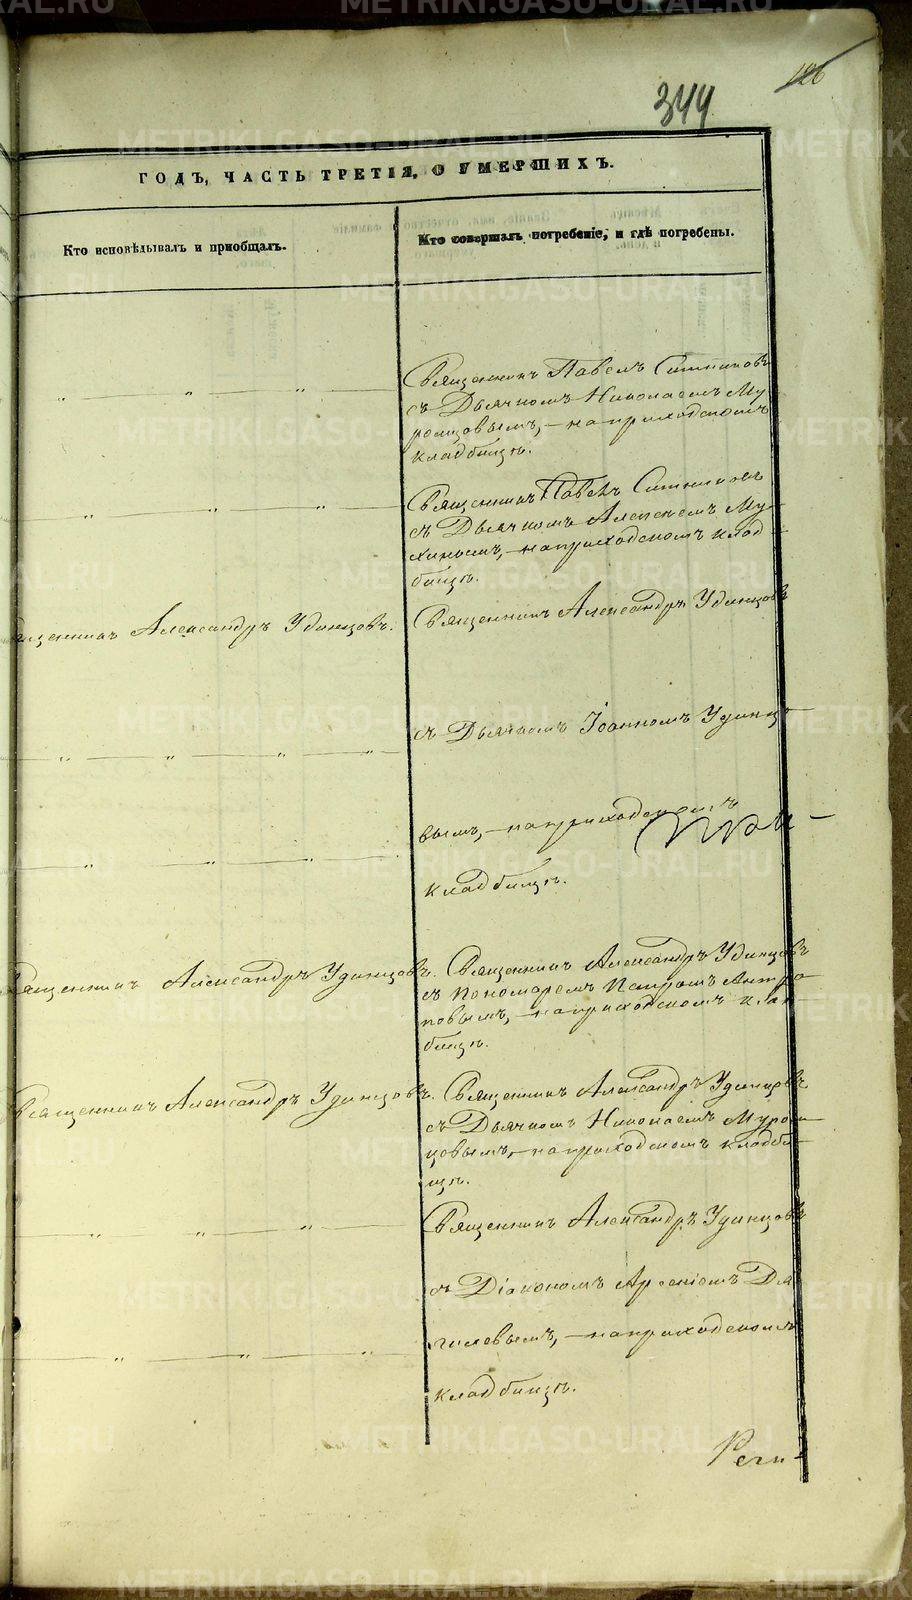 126
344
ГОДЪ, ЧАСТЬ ТРЕТІЯ, О УМЕРШИХЪ.
Кто исповѣдывалъ и пріобщалъ.
Кто совершалъ погребеніе, и гдѣ погребены.
Священникъ Павелъ Ситниковъ
съ Дьячкомъ Николаемъ Му
ромцовымъ, – на приходскомъ
кладбищѣ.
Священникъ Павелъ Ситниковъ
съ Дьячкомъ Алексѣемъ Му-
хинымъ, – на приходскомъ клад
бищѣ.
ященникъ Александръ Удинцовъ.
Священникъ Александръ Удинцовъ
съ Дьячкомъ Іоанномъ Удинцо
вымъ, – на приходскомъ
кладбищѣ.
Священникъ Александръ Удинцовъ.
Священникъ Александръ Удинцовъ
съ Пономаремъ Петромъ Антро
повымъ, – на приходскомъ клад
бищѣ.
Священникъ Александръ Удинцовъ.
Священникъ Александръ Удинцовъ
съ Дьячкомъ Николаемъ Муром
цовымъ, – на приходскомъ кладби-
щѣ.
Священникъ Александръ Удинцовъ
съ Діакономъ Арсеніемъ Дя
гилевымъ, – на приходскомъ
кладбищѣ.
METRIKI.GASO-URAL.RU